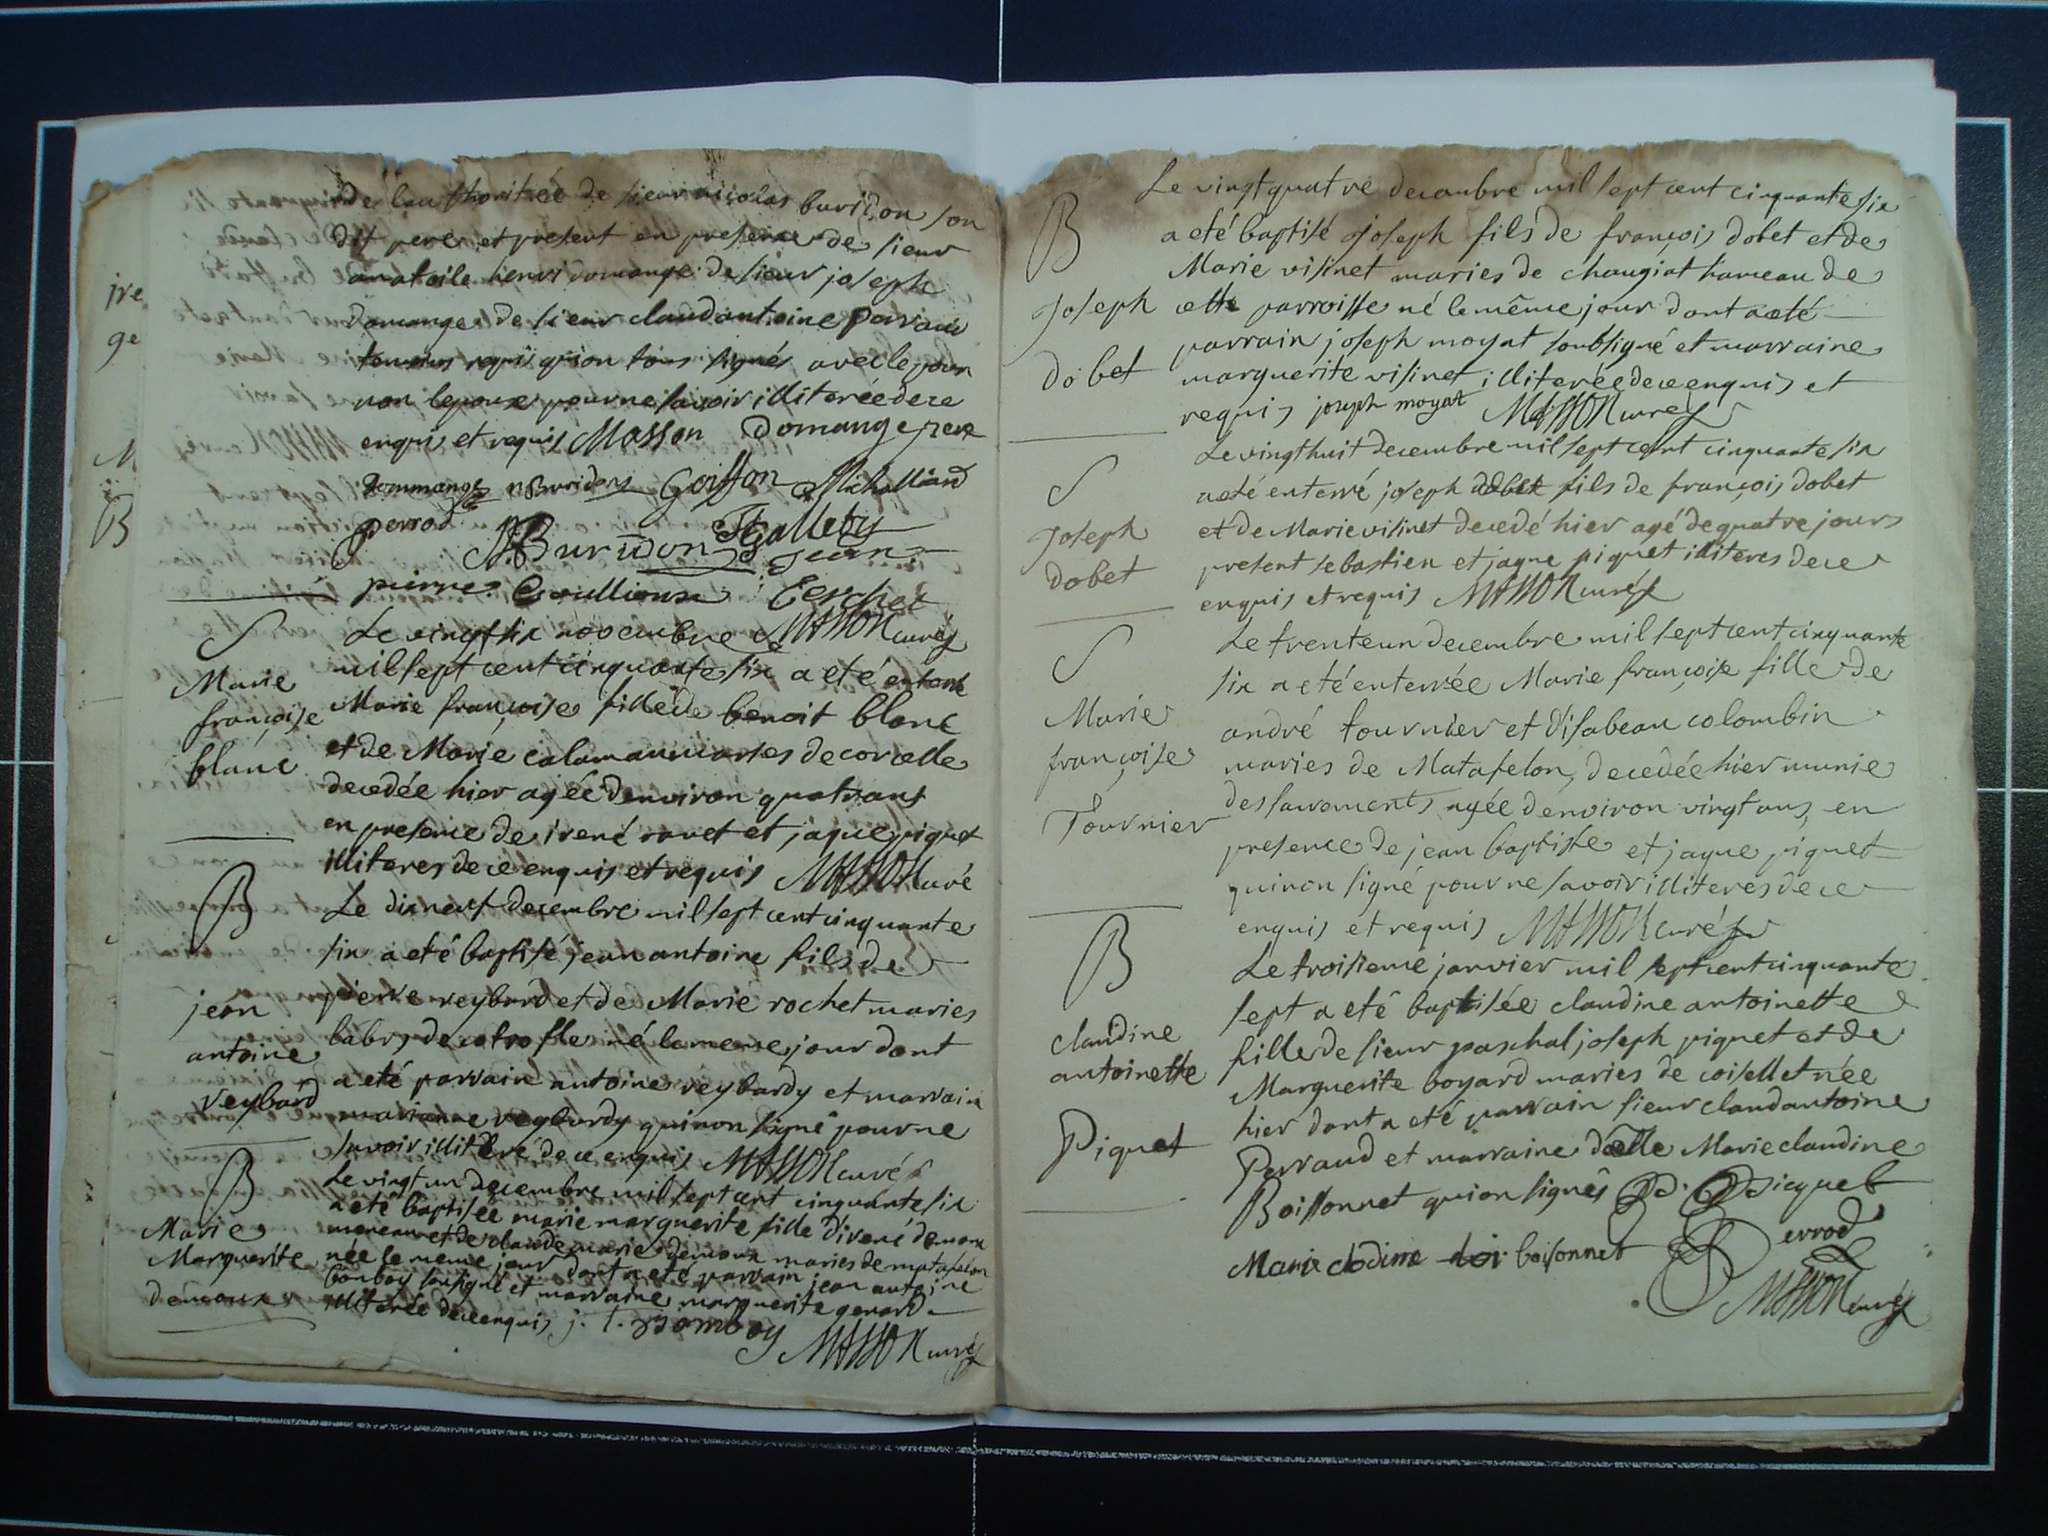 de lauthoritée de sieur nicolas buridon son
dit pere et present en presence de sieur
anatoile henri domange de sieur joseph
domange de sieur claud antoine perraud
temoins requis qui on tous signés avec le
non lepouse pour ne savoir illiterée de ce
enquis et requis Masson Domange pere
Dommange NBuridon Goiffon Michalliand
perrod NBuridon JGalley
jean
pierre Coullioux Cerchet
jre
ge
M
B
S
Marie
françoise
blanc
Le vingt six novembre MASSON curé
mil sept cent cinquante six a eté enterré
Marie françoise fille de benoit blanc
et de Marie calaman maries de corcelle
decedée hier agée denviron quatr ans
en presence de irené ravet et jaque piquet
illiteres de ce enquis et requis MASSON curé
B
jean
antoine
reybard
Le dixneuf decembre mil sept cent cinquante
six a eté baptisé jean antoine fils de
pierre reybard et de Marie rochet maries
né le meme jour dont
a eté parrain antoine reybardy et marrain
marianne reybardy qui non signé pour ne
savoir illiteré de ce enquis MASSON curé
B
Marie
Marguerite
demoux
Le vingt un decembre mil sept cent cinquante six
a eté baptisée marie marguerite fille direné demoux
et de claude marie demoux maries de matafelon
née le meme jour dont a eté parrain jean antoine
bonboy sousigné et marraine marguerite genard
illiterée de ce enquis j. t. Bomboy MASSON curé
B
Joseph
dobet
Le vingt quatre decembre mil sept cent cinquante six
a eté baptisé joseph fils de françois dobet et de
Marie visinet maries de chougiat hameau de
cette parroisse né le même jour dont a eté
parrain joseph moyat soubsigné et marraine
marguerite visinet illiterée de ce enquis et
requis joseph moyat MASSON curé
S
Joseph
dobet
Le vingt huit decembre mil sept cent cinquante six
a eté enterré joseph dobet fils de françois dobet
et de Marie visinet decedé hier agé de quatre jours
present sebastien et jaque piquet illiteres de ce
enquis et requis MASSON curé
S
Marie
françoise
Tournier
Le trente un decembre mil sept cent cinquante
six a eté enterrée Marie françoise fille de
andré tournier et disabeau colombin
maries de Matafelon, decedée hier munie
des sacrements agée denviron vingt ans, en
presence de jean baptiste et jaque piquet
qui non signé pour ne savoir illiteres de ce
enquis et requis MASSON curé
B
claudine
antoinette
Piquet
Le troisieme janvier mil sept cent cinquante
sept a eté baptisée claudine antoinette
fille de sieur paschal joseph piquet et de
Marguerite boyard maries de coiselet née
hier dont a eté parrain sieur claud antoine
Perraud et marraine dlle Marie claudine
Boissonnet qui on signés P. J. Picquet
Marie clodine boisonnet Perrod
MASSON curé